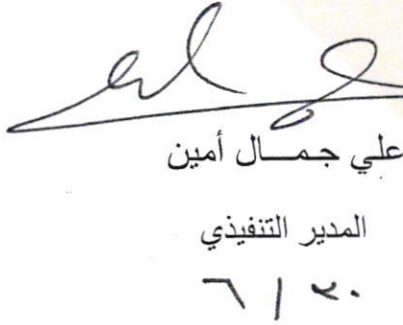 علي جمـــال أمين
المدير التنفيذي
٦ / ٣٠